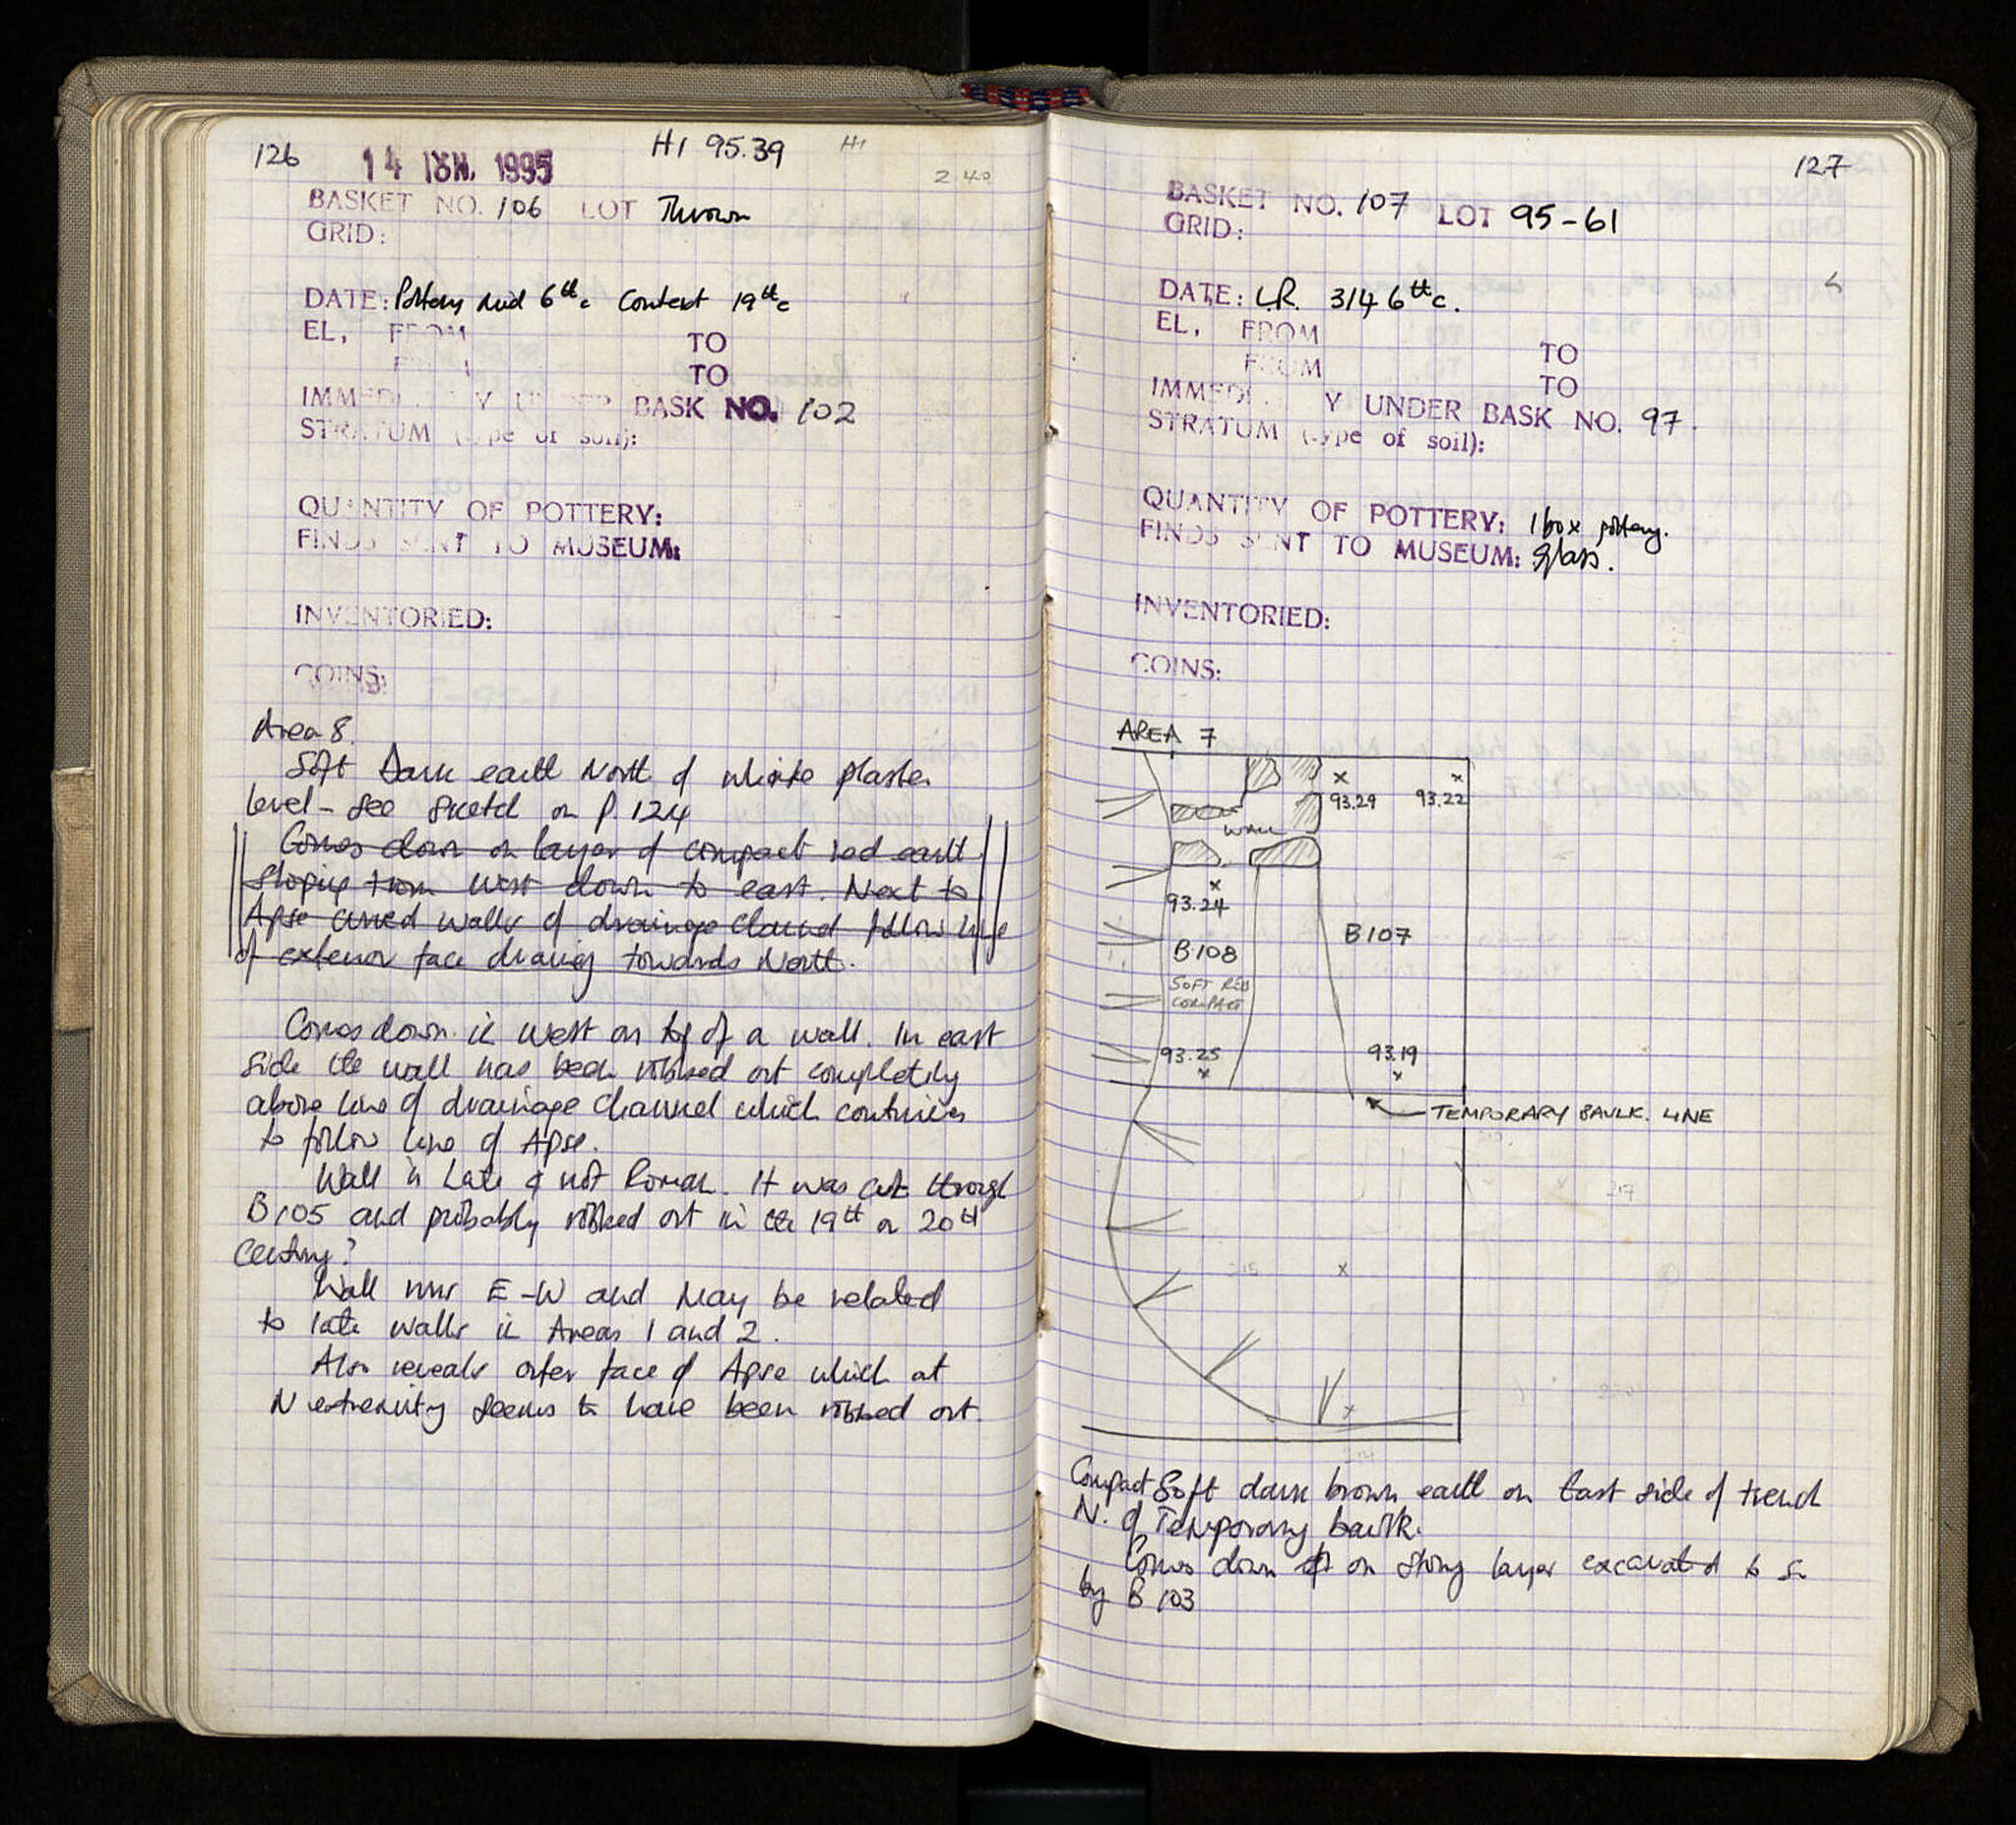 126
14 JUN. 1995
H1 95.39
H1
240
BASKET NO. 106 LOT Thrown
GRID:
DATE: Pottery mid 6th c Context 19th c
EL, FROM TO
TO
BASK NO. 102
STRATUM (type of soil):
QUANTITY OF POTTERY:
FINDS SENT TO MUSEUM:
INVENTORIED:
COINS:
Area 8.
Soft Dark earth North of white plaster
level - see sketch on P. 124
Comes down on layer of compact red earth
sloping from west down to east. Next to
Apse curved walls of drainage channel follow line
of exterior face draining towards North.
Comes down in west on top of a wall. In east
side the wall has been robbed out completely
above line of drainage channel which continues
to follow line of Apse.
Wall is Late & not Roman. It was cut through
B105 and probably robbed out in the 19th or 20th
Century?
Wall runs E-W and may be related
to late walls in Areas 1 and 2.
Also reveals outer face of Apse which at
N extremity seems to have been robbed out.
127
BASKET NO. 107 LOT 95-61
GRID:
DATE: L.R. 3/4 6th c.
EL, FROM TO
FROM TO
Y UNDER BASK NO. 97.
STRATUM (type of soil):
QUANTITY OF POTTERY: 1 box pottery.
FINDS SENT TO MUSEUM: glass.
INVENTORIED:
COINS:
AREA 7
93.29 93.22
WALL
93.24
B107
B108
SOFT RED
COMPACT
93.25 93.19
TEMPORARY BAULK LINE
217
215
Compact Soft dark brown earth on East side of trench
N. of Temporary baulk.
Comes down on stony layer excavated to S
by B 103